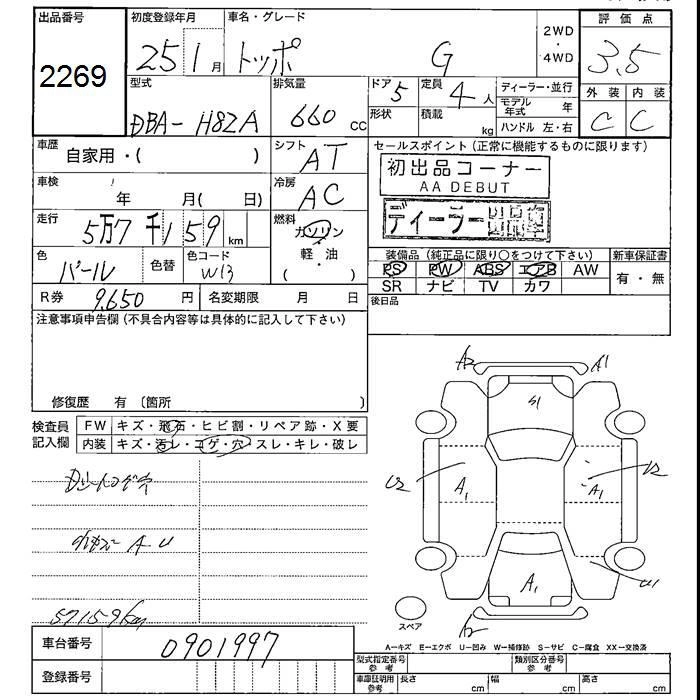 出品番号
2269
初度登録年月
25 1 月
車名・グレード
トッポ G
2WD
・
4WD
評価点
3.5
外装 内装
C C
型式
DBA- H82A
排気量
660 cc
ドア 5
形状
定員 4 人
積載 kg
ディーラー・並行
モデル年式 年
ハンドル 左・右
車歴
自家用・( )
シフト
AT
セールスポイント (正常に機能するものに限ります)
初出品コーナー
AA DEBUT
ディーラー出品車
車検
年 月( 日)
冷房
AC
走行
5万7千159 km
燃料
ガソリン
軽・油
( )
色
パール
色替
色コード
W13
装備品 (純正品に限り○をつけて下さい)
PS PW ABS エアB AW
SR ナビ TV カワ
新車保証書
有・無
R券 9,650 円
名変期限 月 日
後日品
注意事項申告欄 (不具合内容等は具体的に記入して下さい)
修復歴 有 (箇所 )
検査員
記入欄
FW キズ・飛石・ヒビ割・リペア跡・X要
内装 キズ・汚レ・コゲ・穴・スレ・キレ・破レ
A2 A1
S1
U2 A1 A1 U2
A1 U1
A2
57159km
スペア
A−キズ E−エクボ U−凹み W−補修跡 S−サビ C−腐食 XX−交換済
車台番号
0901997
登録番号
型式指定番号
参考
類別区分番号
参考
車庫証明用
参考
長さ cm
幅 cm
高さ cm